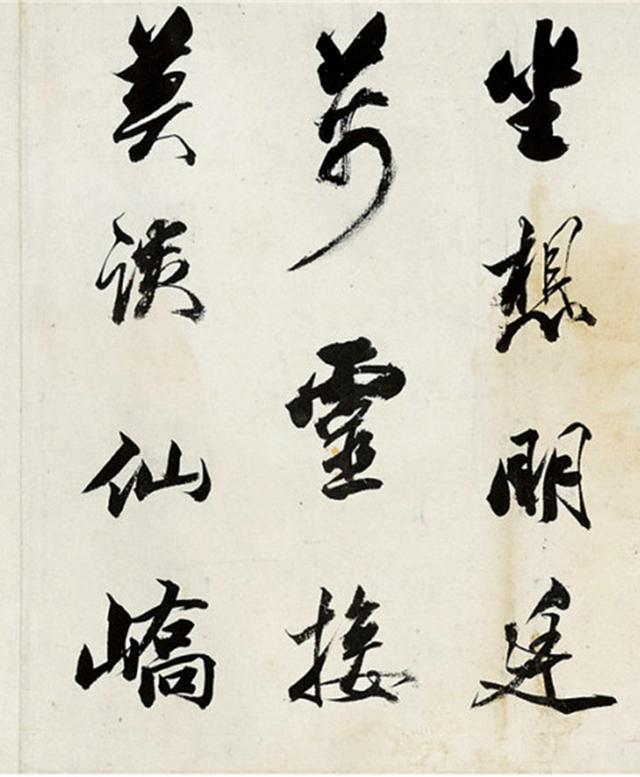 坐想明廷
萬靈接
莫談仙嶠